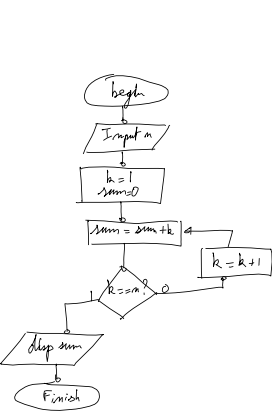 begin
Input n
k = 1
sum=0
sum = sum+k
k = k+1
k==n?
1
0
disp sum
Finish